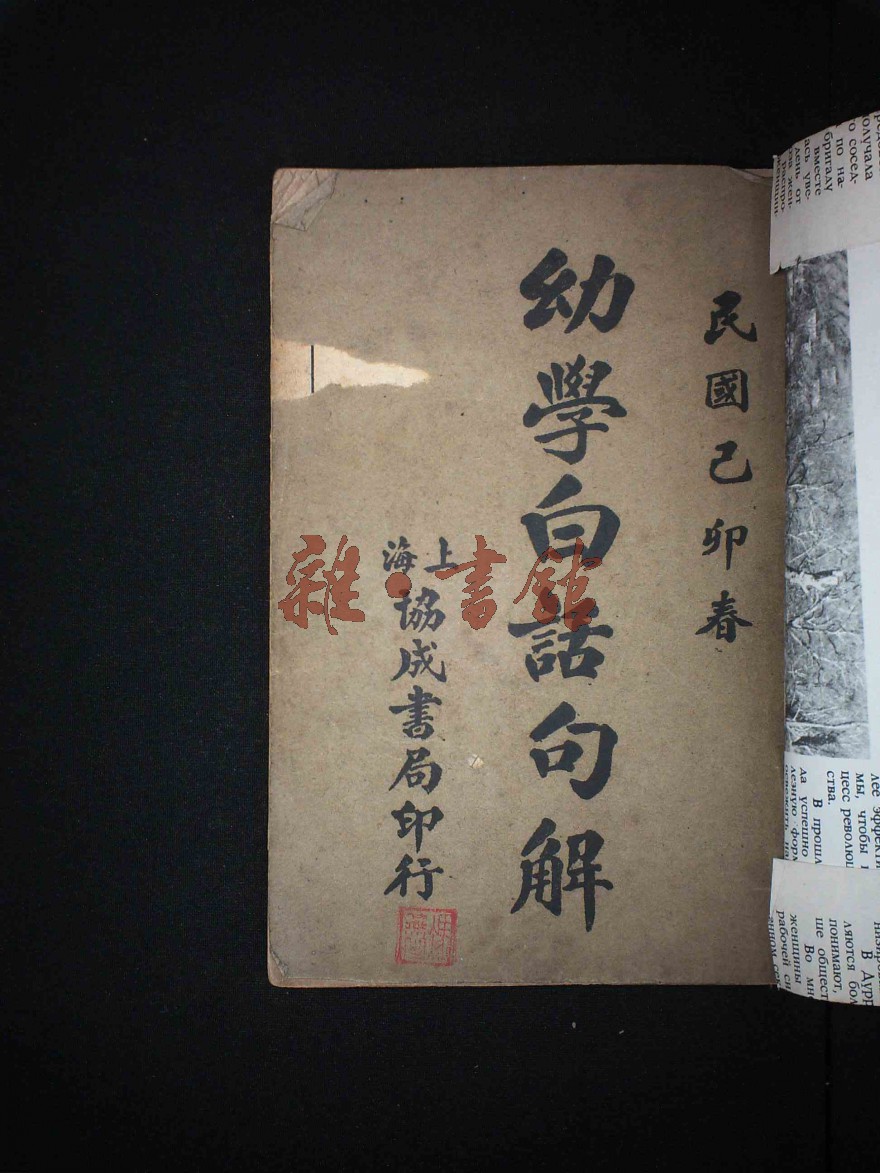 民國己卯春
幼學白話句解
上海
協成書局印行
雜·書館
получала
го сосед-
по на-
бригаду
вместе
ась уве-
день от
мы, чтобы
цесс револю
ства.
В прошл
да успешно
лезную фор
В Дург
ляются бол
понимают,
ше общест
Во мн
женщины
рабочей си